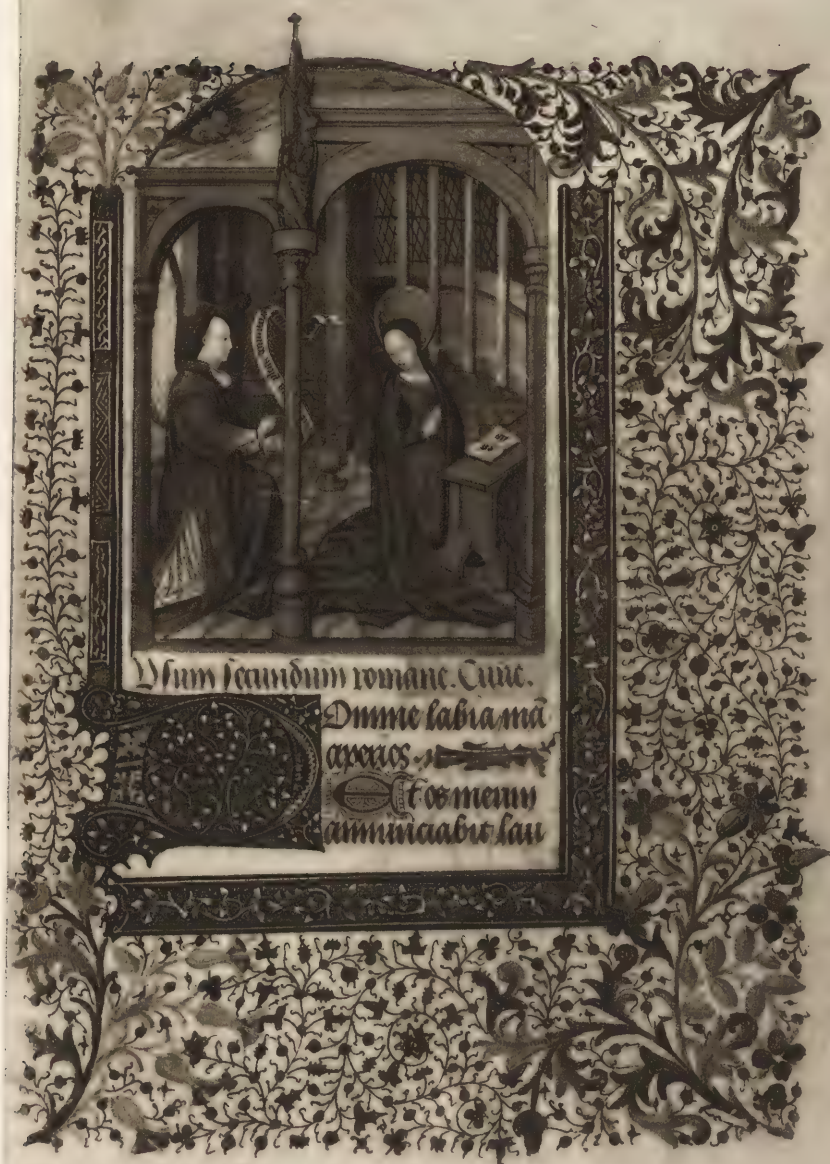 Vsum secundum romane. Curie.
Domine labia mea
aperies.
Et os meum
annunciabit lau